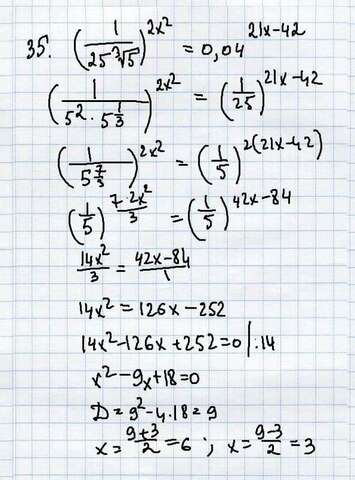 35. (1/(25∛5))^(2x²) = 0,04^(21x-42)
(1/(5²·5^(1/3)))^(2x²) = (1/25)^(21x-42)
(1/5^(7/3))^(2x²) = (1/5)^(2(21x-42))
(1/5)^(7·2x²/3) = (1/5)^(42x-84)
14x²/3 = (42x-84)/1
14x² = 126x - 252
14x² - 126x + 252 = 0 |:14
x² - 9x + 18 = 0
D = 9² - 4·18 = 9
x = (9+3)/2 = 6 ; x = (9-3)/2 = 3